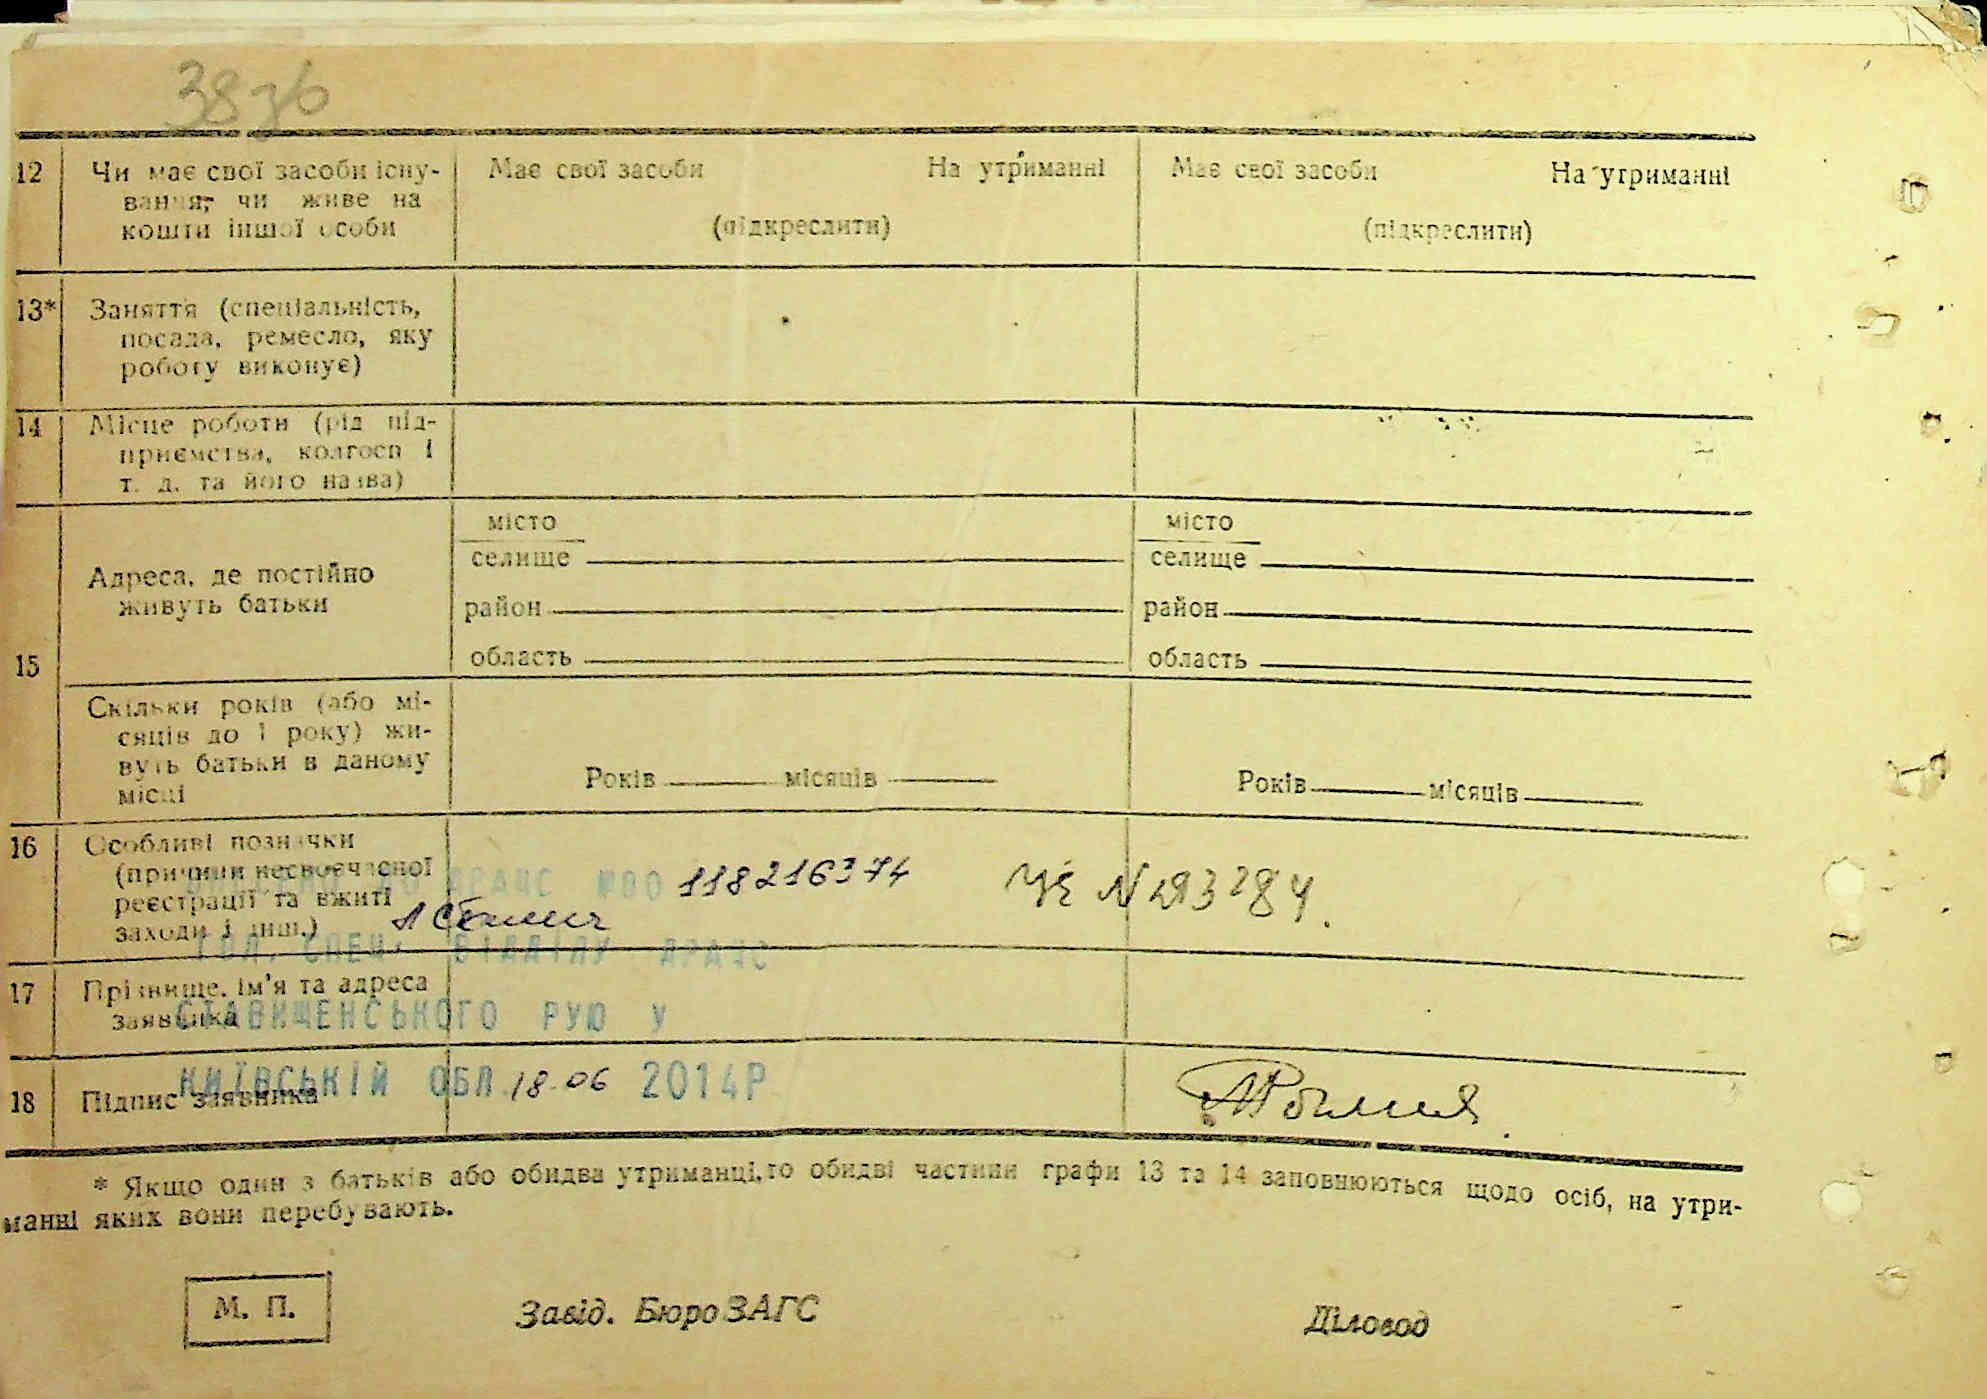 38зв
12 Чи має свої засоби існу-
вання, чи живе на
кошти іншої особи
Має свої засоби На утриманні
(підкреслити)
Має свої засоби На утриманні
(підкреслити)
13* Заняття (спеціальність,
посада, ремесло, яку
роботу виконує)
14 Місце роботи (рід під-
приємства, колгосп і
т. д. та його назва)
15 Адреса, де постійно
живуть батьки
місто
селище
район
область
місто
селище
район
область
Скільки років (або мі-
сяців до 1 року) жи-
вуть батьки в даному
місці
Років місяців
Років місяців
16 Особливі позначки
(причини несвоєчасної
реєстрації та вжиті
заходи і інш.)
ДРАЦС №00 118216374
N 293284.
ГОЛ. СПЕЦ. ВІДДІЛУ ДРАЦС
17 Прізвище, ім'я та адреса
заявника
СТАВИЩЕНСЬКОГО РУЮ У
КИЇВСЬКІЙ ОБЛ. 18.06 2014Р
18 Підпис заявника
* Якщо один з батьків або обидва утриманці, то обидві частини графи 13 та 14 заповнюються щодо осіб, на утри-
манні яких вони перебувають.
М. П.
Завід. Бюро ЗАГС
Діловод